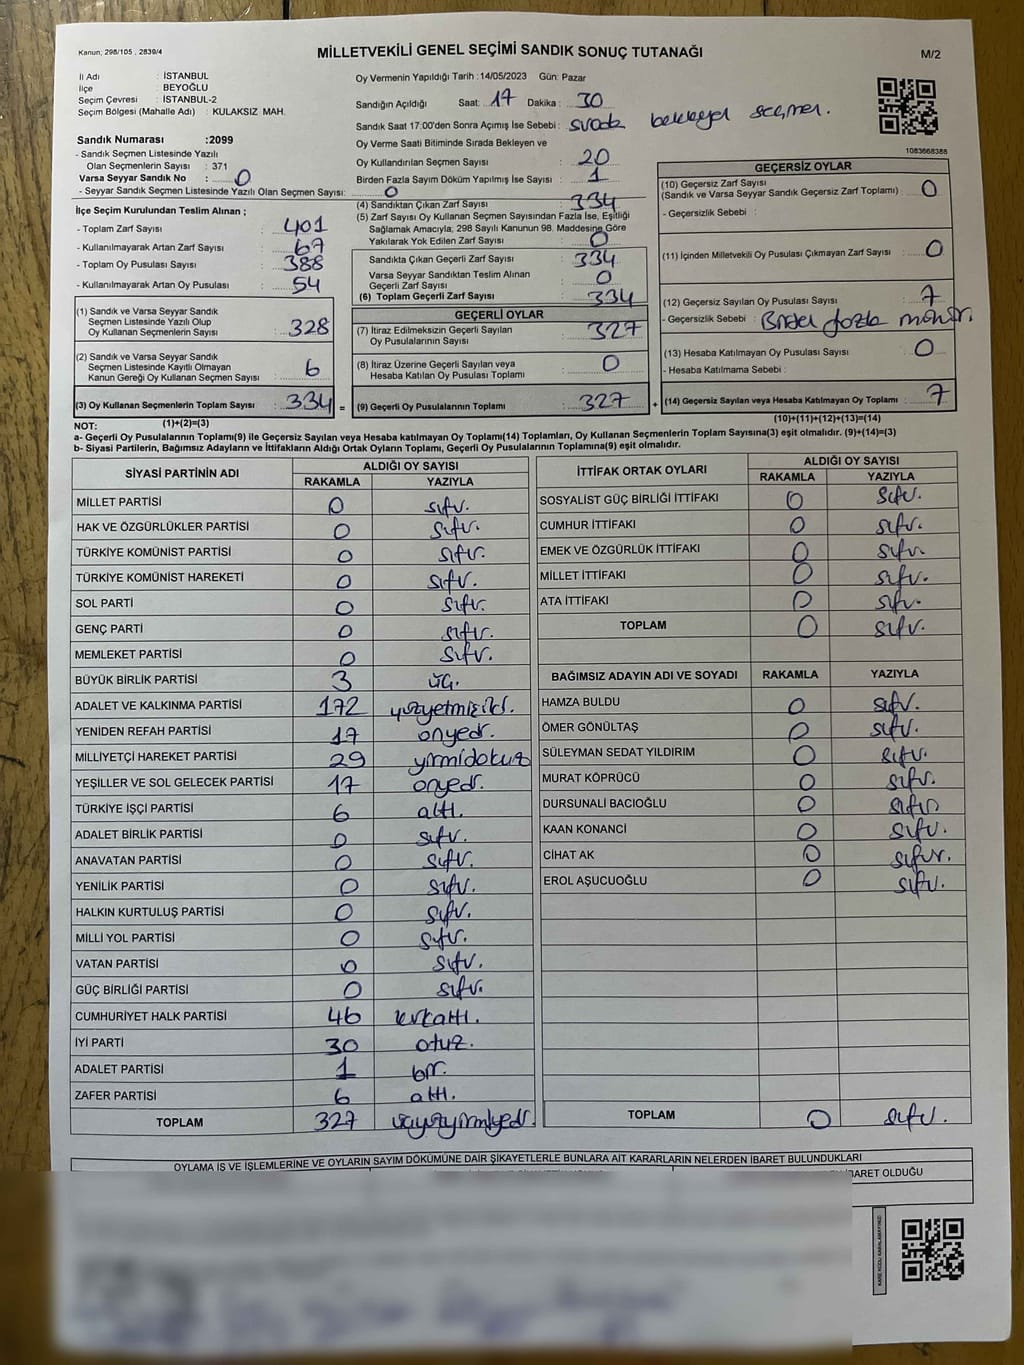 Kanun; 298/105 , 2839/4
MİLLETVEKİLİ GENEL SEÇİMİ SANDIK SONUÇ TUTANAĞI
M/2
İl Adı : İSTANBUL
İlçe : BEYOĞLU
Seçim Çevresi : İSTANBUL-2
Seçim Bölgesi (Mahalle Adı) : KULAKSIZ MAH.
Sandık Numarası :2099
- Sandık Seçmen Listesinde Yazılı
Olan Seçmenlerin Sayısı : 371
Varsa Seyyar Sandık No : 0
- Seyyar Sandık Seçmen Listesinde Yazılı Olan Seçmen Sayısı: 0
Oy Vermenin Yapıldığı Tarih :14/05/2023 Gün: Pazar
Sandığın Açıldığı Saat: 17 Dakika : 30
Sandık Saat 17:00'den Sonra Açımış İse Sebebi : sırada bekleyen seçmen.
Oy Verme Saati Bitiminde Sırada Bekleyen ve
Oy Kullandırılan Seçmen Sayısı : 20
Birden Fazla Sayım Döküm Yapılmış İse Sayısı : 1
1083668385
İlçe Seçim Kurulundan Teslim Alınan ;
- Toplam Zarf Sayısı : 401
- Kullanılmayarak Artan Zarf Sayısı : 67
- Toplam Oy Pusulası Sayısı : 388
- Kullanılmayarak Artan Oy Pusulası : 54
(1) Sandık ve Varsa Seyyar Sandık
Seçmen Listesinde Yazılı Olup
Oy Kullanan Seçmenlerin Sayısı : 328
(2) Sandık ve Varsa Seyyar Sandık
Seçmen Listesinde Kayıtlı Olmayan
Kanun Gereği Oy Kullanan Seçmen Sayısı : 6
(3) Oy Kullanan Seçmenlerin Toplam Sayısı : 334 =
(1)+(2)=(3)
(4) Sandıktan Çıkan Zarf Sayısı : 334
(5) Zarf Sayısı Oy Kullanan Seçmen Sayısından Fazla İse, Eşitliği
Sağlamak Amacıyla, 298 Sayılı Kanunun 98. Maddesine Göre
Yakılarak Yok Edilen Zarf Sayısı : 0
Sandıkta Çıkan Geçerli Zarf Sayısı : 334
Varsa Seyyar Sandıktan Teslim Alınan
Geçerli Zarf Sayısı : 0
(6) Toplam Geçerli Zarf Sayısı : 334
GEÇERLİ OYLAR
(7) İtiraz Edilmeksizin Geçerli Sayılan
Oy Pusulalarının Sayısı : 327
(8) İtiraz Üzerine Geçerli Sayılan veya
Hesaba Katılan Oy Pusulası Toplamı : 0
(9) Geçerli Oy Pusulalarının Toplamı : 327 +
GEÇERSİZ OYLAR
(10) Geçersiz Zarf Sayısı
(Sandık ve Varsa Seyyar Sandık Geçersiz Zarf Toplamı) : 0
- Geçersizlik Sebebi :
(11) İçinden Milletvekili Oy Pusulası Çıkmayan Zarf Sayısı : 0
(12) Geçersiz Sayılan Oy Pusulası Sayısı : 7
- Geçersizlik Sebebi : Birden fazla mühür.
(13) Hesaba Katılmayan Oy Pusulası Sayısı : 0
- Hesaba Katılmama Sebebi :
(14) Geçersiz Sayılan veya Hesaba Katılmayan Oy Toplamı : 7
(10)+(11)+(12)+(13)=(14)
NOT:
a- Geçerli Oy Pusulalarının Toplamı(9) ile Geçersiz Sayılan veya Hesaba katılmayan Oy Toplamı(14) Toplamları, Oy Kullanan Seçmenlerin Toplam Sayısına(3) eşit olmalıdır. (9)+(14)=(3)
b- Siyasi Partilerin, Bağımsız Adayların ve İttifakların Aldığı Ortak Oyların Toplamı, Geçerli Oy Pusulalarının Toplamına(9) eşit olmalıdır.
SİYASİ PARTİNİN ADI ALDIĞI OY SAYISI
RAKAMLA YAZIYLA
MİLLET PARTİSİ 0 sıfır.
HAK VE ÖZGÜRLÜKLER PARTİSİ 0 sıfır.
TÜRKİYE KOMÜNİST PARTİSİ 0 sıfır.
TÜRKİYE KOMÜNİST HAREKETİ 0 sıfır.
SOL PARTİ 0 sıfır.
GENÇ PARTİ 0 sıfır.
MEMLEKET PARTİSİ 0 sıfır.
BÜYÜK BİRLİK PARTİSİ 3 üç.
ADALET VE KALKINMA PARTİSİ 172 yüzyetmişiki.
YENİDEN REFAH PARTİSİ 17 onyedi.
MİLLİYETÇİ HAREKET PARTİSİ 29 yirmidokuz
YEŞİLLER VE SOL GELECEK PARTİSİ 17 onyedi.
TÜRKİYE İŞÇİ PARTİSİ 6 altı.
ADALET BİRLİK PARTİSİ 0 sıfır.
ANAVATAN PARTİSİ 0 sıfır.
YENİLİK PARTİSİ 0 sıfır.
HALKIN KURTULUŞ PARTİSİ 0 sıfır.
MİLLİ YOL PARTİSİ 0 sıfır.
VATAN PARTİSİ 0 sıfır.
GÜÇ BİRLİĞİ PARTİSİ 0 sıfır.
CUMHURİYET HALK PARTİSİ 46 kırkaltı.
İYİ PARTİ 30 otuz.
ADALET PARTİSİ 1 bir.
ZAFER PARTİSİ 6 altı.
TOPLAM 327 üçyüzyirmiyedi.
İTTİFAK ORTAK OYLARI ALDIĞI OY SAYISI
RAKAMLA YAZIYLA
SOSYALİST GÜÇ BİRLİĞİ İTTİFAKI 0 sıfır.
CUMHUR İTTİFAKI 0 sıfır.
EMEK VE ÖZGÜRLÜK İTTİFAKI 0 sıfır.
MİLLET İTTİFAKI 0 sıfır.
ATA İTTİFAKI 0 sıfır.
TOPLAM 0 sıfır.
BAĞIMSIZ ADAYIN ADI VE SOYADI RAKAMLA YAZIYLA
HAMZA BULDU 0 sıfır.
ÖMER GÖNÜLTAŞ 0 sıfır.
SÜLEYMAN SEDAT YILDIRIM 0 sıfır.
MURAT KÖPRÜCÜ 0 sıfır.
DURSUNALİ BACIOĞLU 0 sıfır
KAAN KONANCİ 0 sıfır.
CİHAT AK 0 sıfır.
EROL AŞUCUOĞLU 0 sıfır.
TOPLAM 0 sıfır.
OYLAMA İŞ VE İŞLEMLERİNE VE OYLARIN SAYIM DÖKÜMÜNE DAİR ŞİKAYETLERLE BUNLARA AİT KARARLARIN NELERDEN İBARET BULUNDUKLARI
İBARET OLDUĞU
KARE KODU KARALAMAYINIZ!